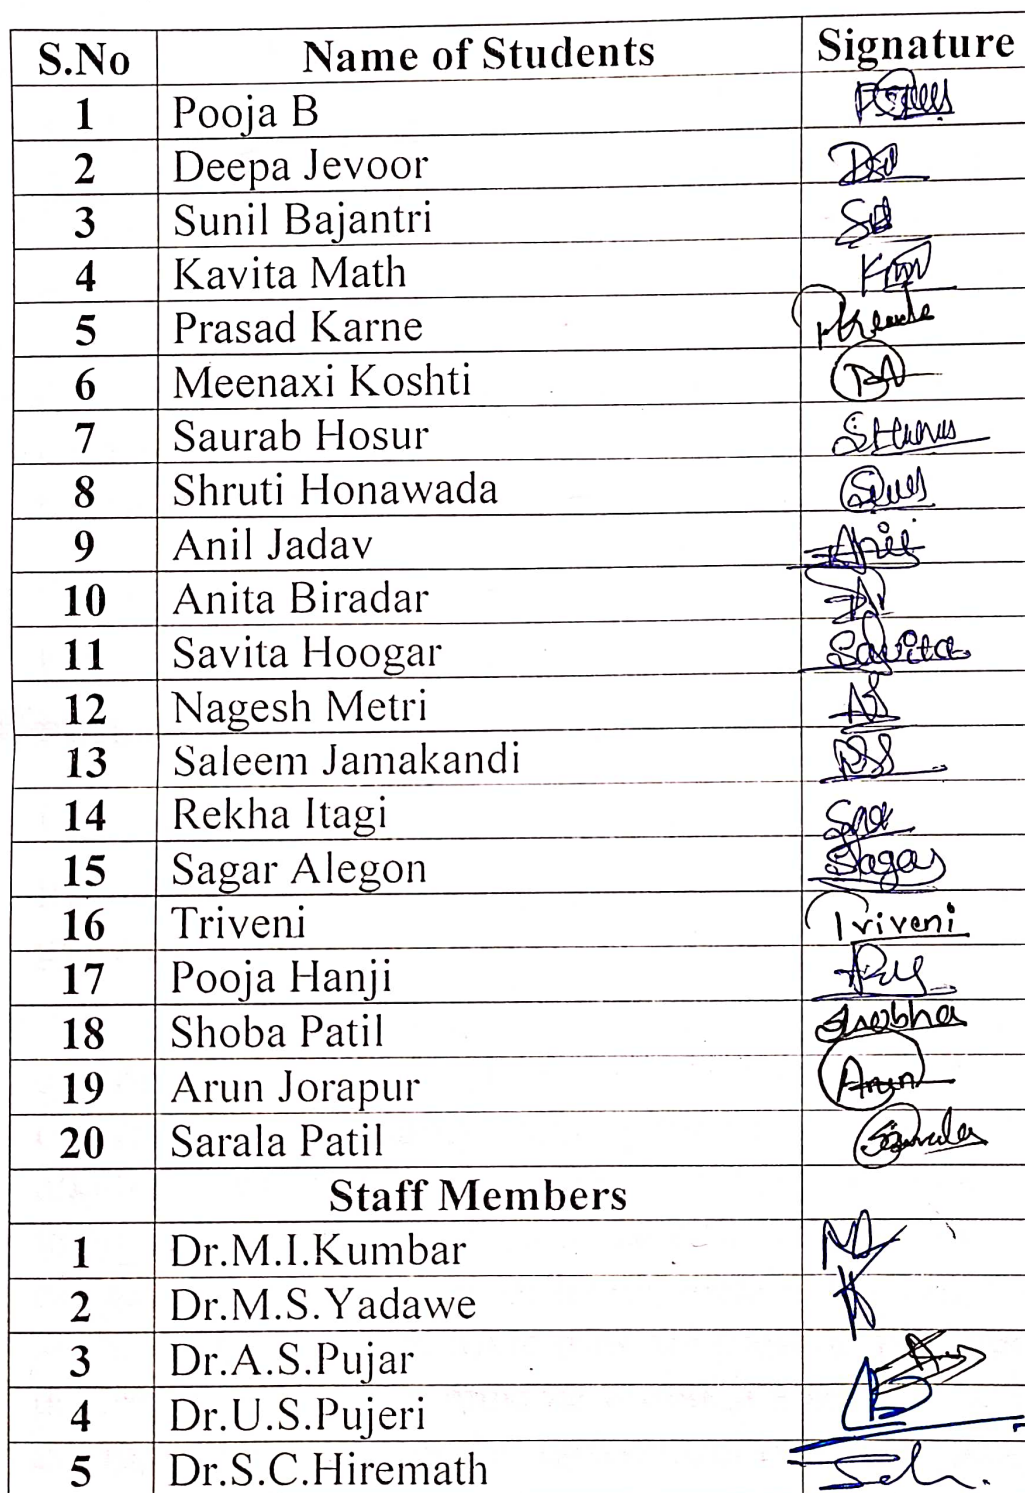 S.No Name of Students Signature
1 Pooja B
2 Deepa Jevoor
3 Sunil Bajantri
4 Kavita Math
5 Prasad Karne
6 Meenaxi Koshti
7 Saurab Hosur
8 Shruti Honawada
9 Anil Jadav Anil
10 Anita Biradar
11 Savita Hoogar Savita
12 Nagesh Metri
13 Saleem Jamakandi
14 Rekha Itagi
15 Sagar Alegon Sagar
16 Triveni Triveni
17 Pooja Hanji
18 Shoba Patil Shobha
19 Arun Jorapur Arun
20 Sarala Patil
Staff Members
1 Dr.M.I.Kumbar
2 Dr.M.S.Yadawe
3 Dr.A.S.Pujar
4 Dr.U.S.Pujeri
5 Dr.S.C.Hiremath